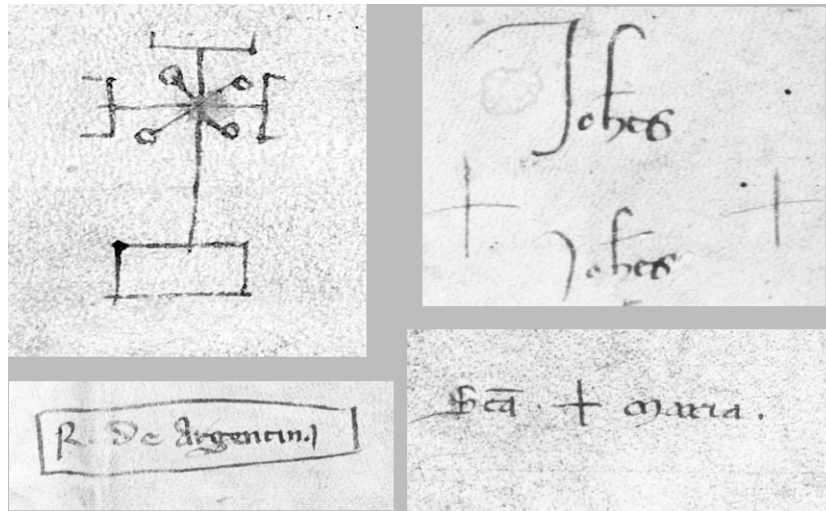 Johes
Johes
R. de Argentina
Sca + maria.